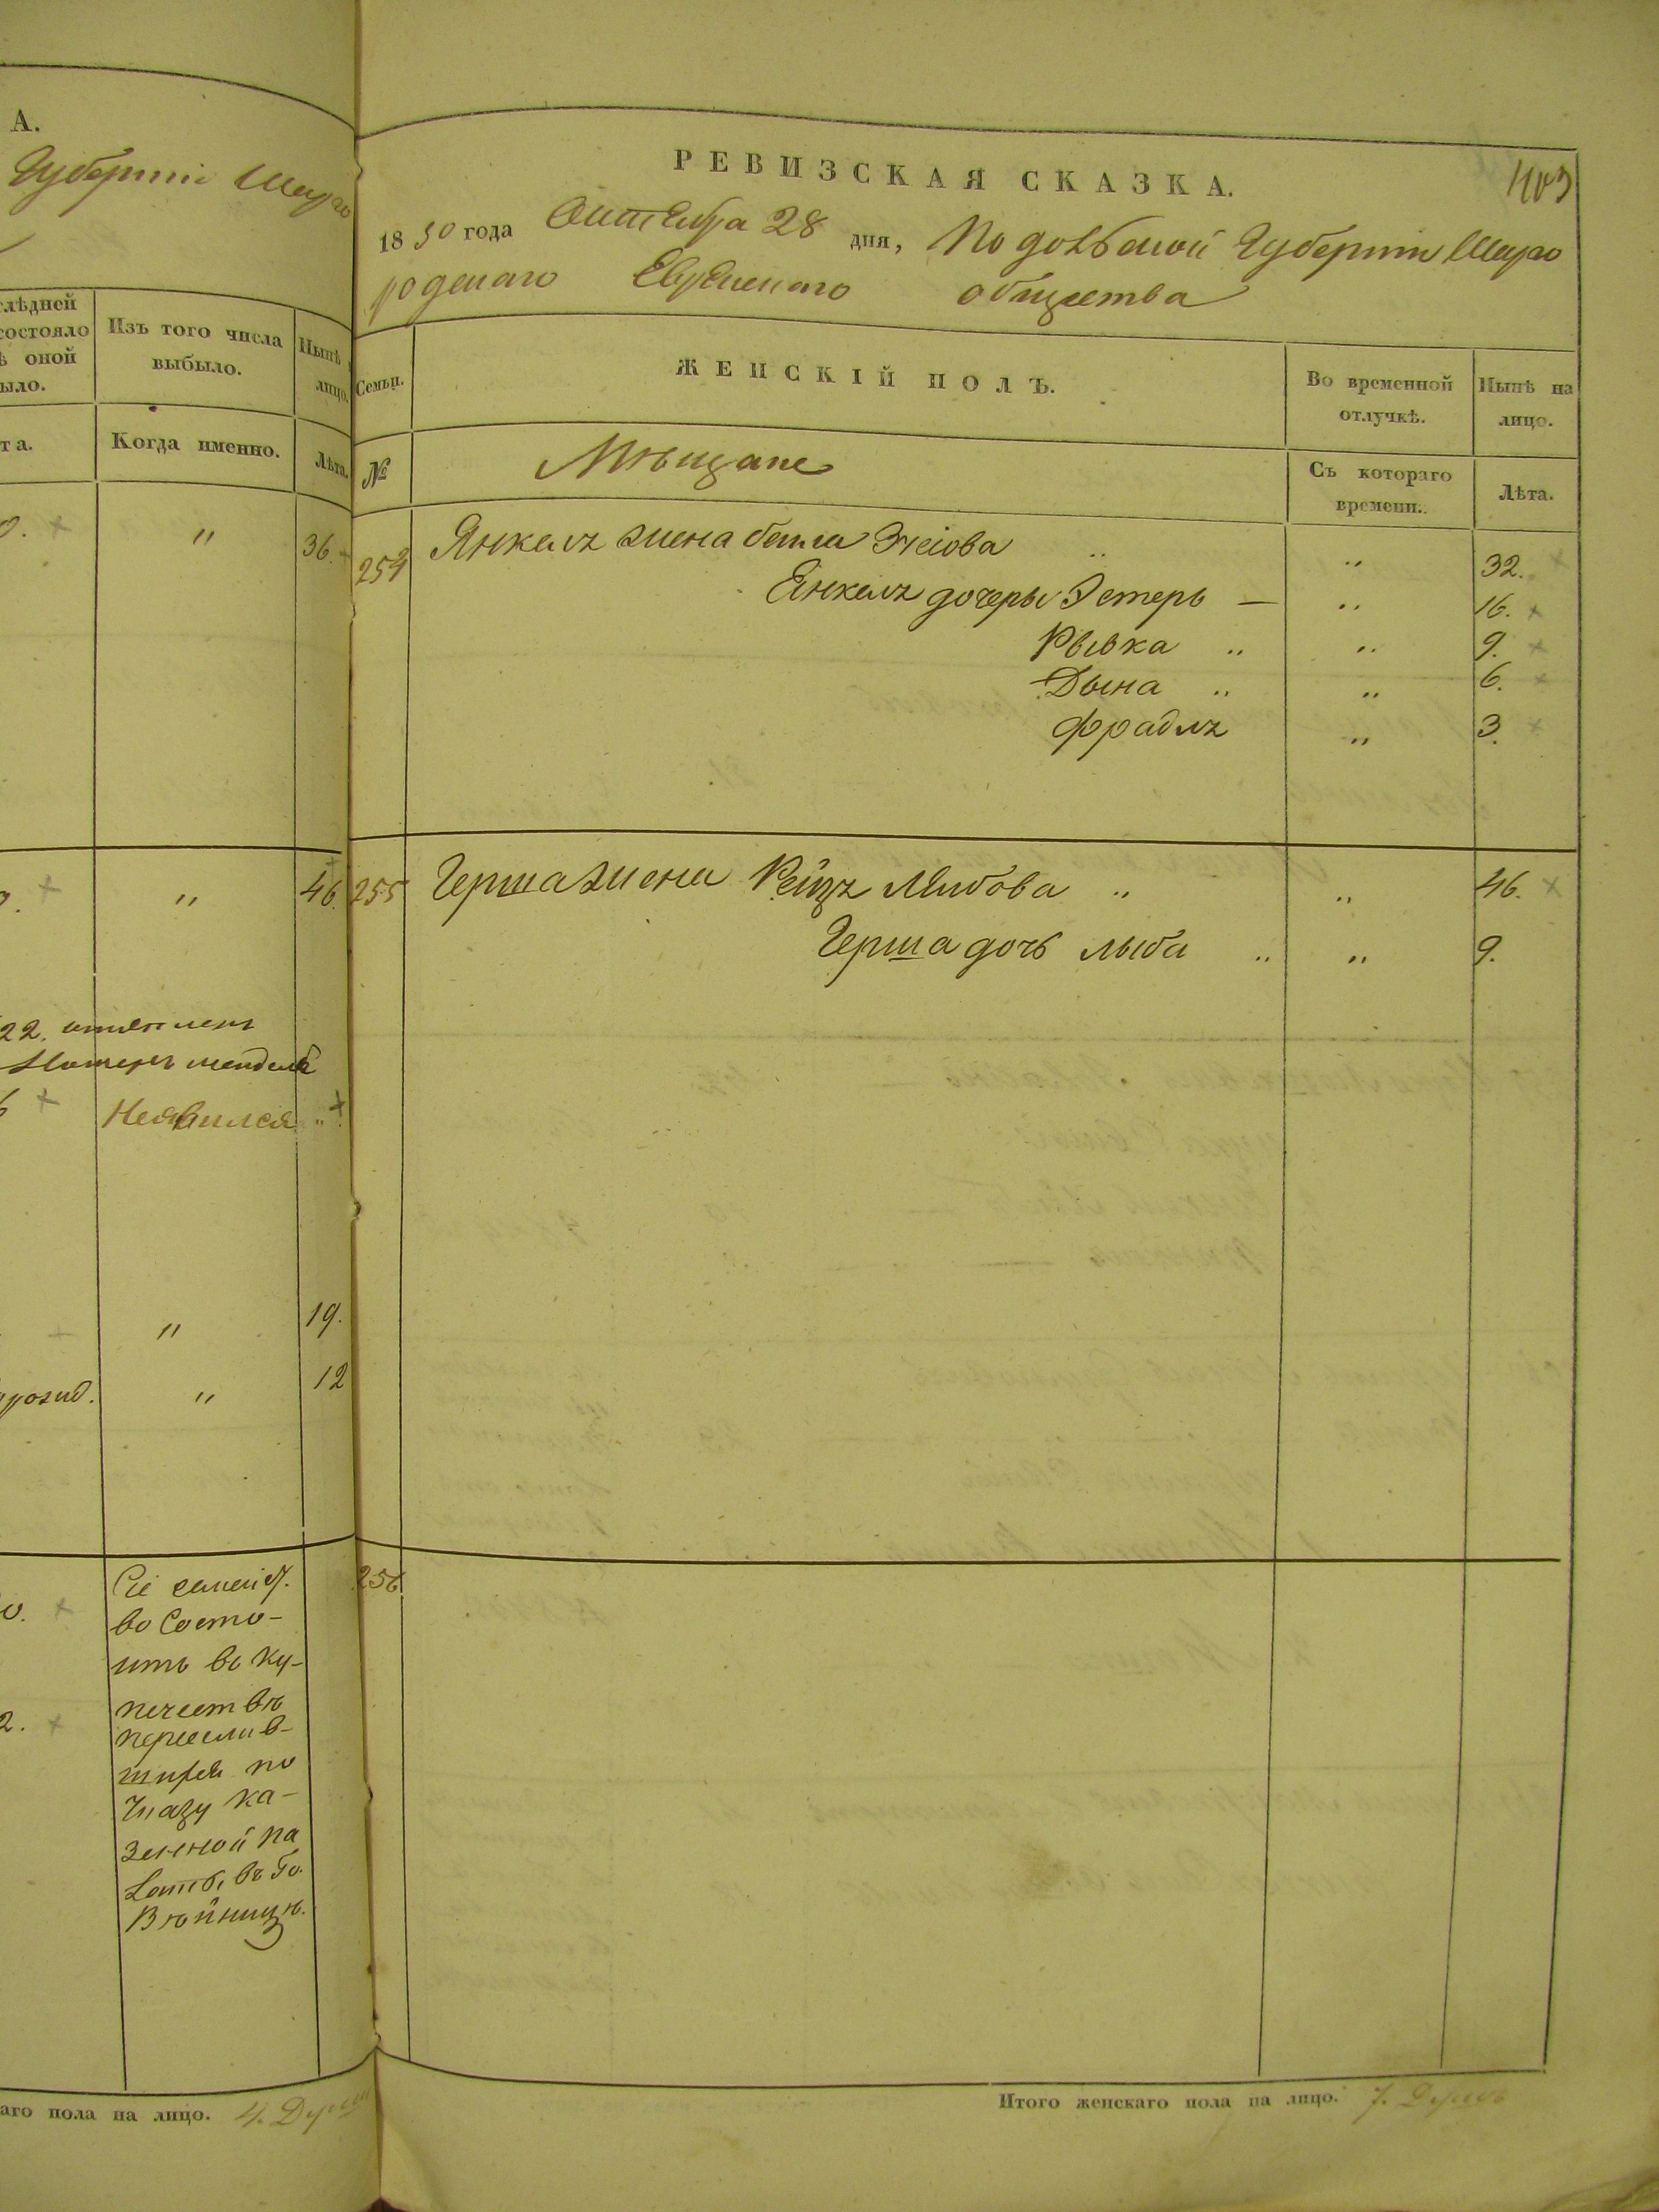 А.
Губерніи Шаро
слѣдней
состояло
ѣ оной
ыло.
Изъ того числа
выбыло.
Нынѣ
лицо.
та.
Когда именно.
Лѣта.
0. × " 36.
" 46.
22.
Неявился ..
" 19.
" 12
Сіе семейст.
во Состо-
итъ въ ку-
печествѣ
переслив-
шися по
Указу ка-
зенной па
латы, въ Го.
Войницѣ.
аго пола на лицо. 4. Душ
403
РЕВИЗСКАЯ СКАЗКА.
1850 года Октября 28 дня, Подольской Губерніи Шаро
родскаго Еврейскаго общества
Семьи.
ЖЕНСКІЙ ПОЛЪ.
Во временной
отлучкѣ.
Нынѣ на
лицо.
№
Мѣщане
Съ котораго
времени.
Лѣта.
254 Янкеля жена бейла .. .. 32.
Янкеля дочеры Эстеръ — .. 16.
Рывка .. .. 9.
Дына .. „ 6.
Фрадля „ 3.
255 Герша жена Рейзя Лейбова .. .. 46.
Герша дочь лыба .. „ 9.
256
Итого женскаго пола на лицо. 7. Душъ